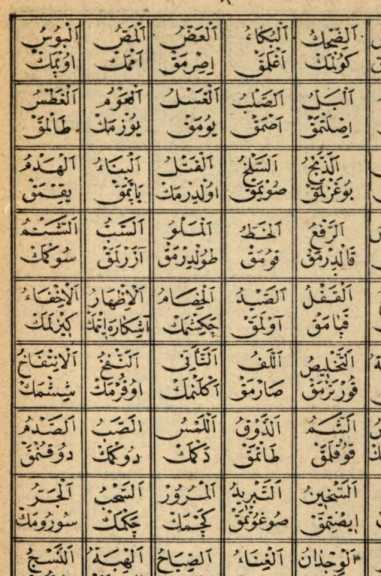 اَلضِّحْكُ اَلْبُكَاءُ اَلْعَضُّ اَلْمَصُّ اَلْبَوْسُ
كُولْمَكْ اَغْلَمَقْ اِصِرْمَقْ اَمْمَكْ اُوپْمَكْ
اَلْبَلُّ اَلصَّلْبُ اَلْغَسْلُ اَلْعَوْمُ اَلْغَطْسُ
اِصْلَتْمَقْ اَصْمَقْ يُومَقْ يُوزْمَكْ طَالْمَقْ
اَلذَّبْحُ اَلسَّلْخُ اَلْقَتْلُ اَلْبِنَاءُ اَلْهَدْمُ
بُوغَزْلَمَقْ صُويْمَقْ اُولْدِرْمَكْ يَاپْمَقْ يِقْمَقْ
اَلرَّفْعُ اَلْحَطُّ اَلْمَلْوُ اَلسَّبُّ اَلشَّتْمُ
قَالْدِرْمَقْ قُومَقْ طُولْدِرْمَقْ اَزَرْلَمَقْ سُوكْمَكْ
اَلْقَفْلُ اَلصَّيْدُ اَلْخِصَامُ اَلْاِظْهَارُ اَلْاِخْفَاءُ
قَپَامَقْ آوْلَمَقْ چَكِشْمَكْ آشِكَارَه اِتْمَكْ كِيزْلَمَكْ
اَلتَّخْلِيصُ اَللَّفُّ اَلتَّأَنِّى اَلنَّفْخُ اَلْاِنْتِفَاخُ
قُورْتَرْمَقْ صَارْمَقْ اَكْلَنْمَكْ اُوفُرْمَكْ شِيشْمَكْ
اَلشَّمُّ اَلذَّوْقُ اَللَّمْسُ اَلصَّبُّ اَلصَّدْمُ
قُوقْلَمَقْ طَاتْمَقْ دَكْمَكْ دُوكْمَكْ دُوقُنْمَقْ
اَلتَّسْخِينُ اَلتَّبْرِيدُ اَلْمُرُورُ اَلسَّحْبُ اَلْجَرُّ
اِيصِتْمَقْ صُوغُوتْمَقْ كَچْمَكْ چَكْمَكْ سُورُومَكْ
اَلْوِجْدَانُ اَلْغِنَاءُ اَلصِّيَاحُ اَلْهِبَةُ اَلنَّسْجُ